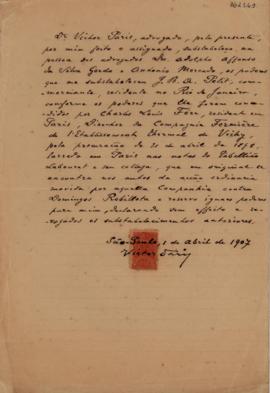 Dr Victor Páris, advogado, pelo presente,
por mim feito e assignado, substabeleço na
pessoa dos advogados Drs. Adolpho Affonso
da Silva Gordo e Antonio Mercado, os poderes
que me substabeleceu J. R. de Félis, com-
merciante, residente no Rio de Janeiro,
conforme os poderes que lhe foram con-
cedidos por Charles Louis Fère, residente em
Paris, Director da Compagnie Fermière
de l'Etablissement thermal de Vichy,
pela procuração de 20 de abril de 1898,
lavrada em Paris nas notas do tabellião
e seu collega, que em original se
encontra nos autos da acção ordinaria
movida por aquella Companhia contra
Domingos e reservo iguaes poderes
para mim, declarando sem effeito e re-
vogados os substabelecimentos anteriores.
São-Paulo, 1 de Abril de 1907
Victor Páris